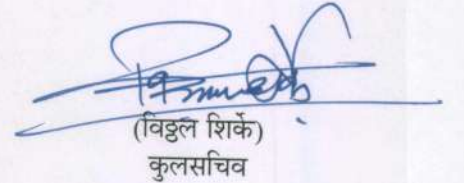 (विठ्ठल शिर्के)
कुलसचिव